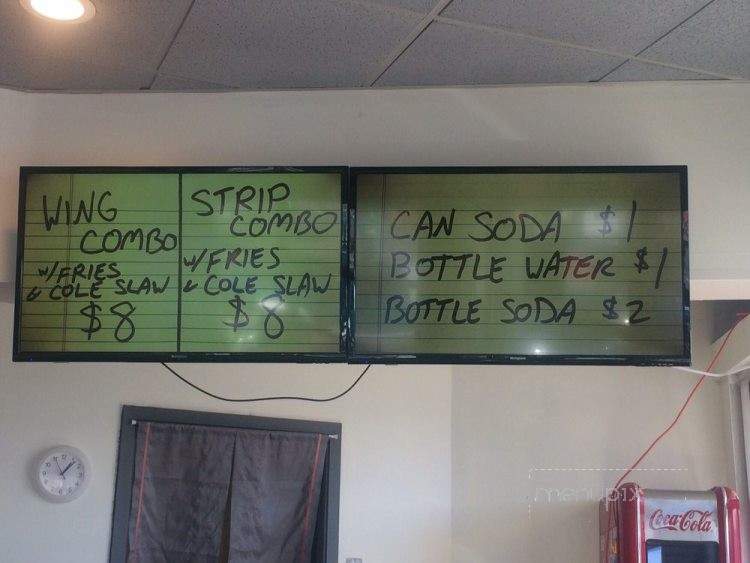 WING
COMBO
W/FRIES
& COLE SLAW
$8
STRIP
COMBO
W/FRIES
& COLE SLAW
$8
CAN SODA $1
BOTTLE WATER $1
BOTTLE SODA $2
menupix
Coca-Cola